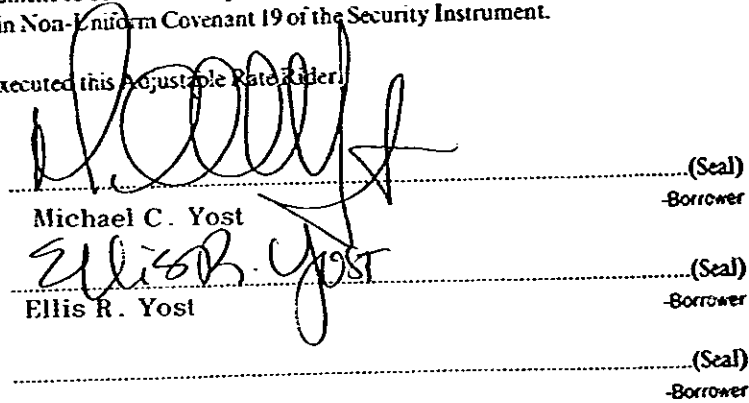 in Non-Uniform Covenant 19 of the Security Instrument.
xecuted this Adjustable Rate Rider.
(Seal)
-Borrower
Michael C. Yost
Ellis R. Yost
(Seal)
Ellis R. Yost
-Borrower
(Seal)
-Borrower